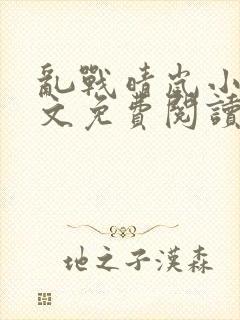 亂戰晴嵐小
文免費閱讀
地之子漢森